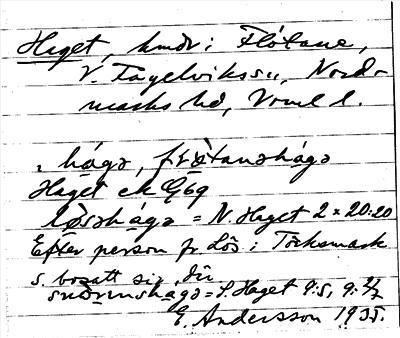 Haget, hmdr i Flötane,
V. Fågelviks sn, Nord-
marks hd, Vrml l.
, hágə, flø̀tanəhágə
Haget ek G69
lø̀səhágə = N. Haget 2 × 20:20
Efter person fr Lös i Töcksmark
s. bosatt sig där
= S. Haget 9:5, 9:
E. Andersson 1935.